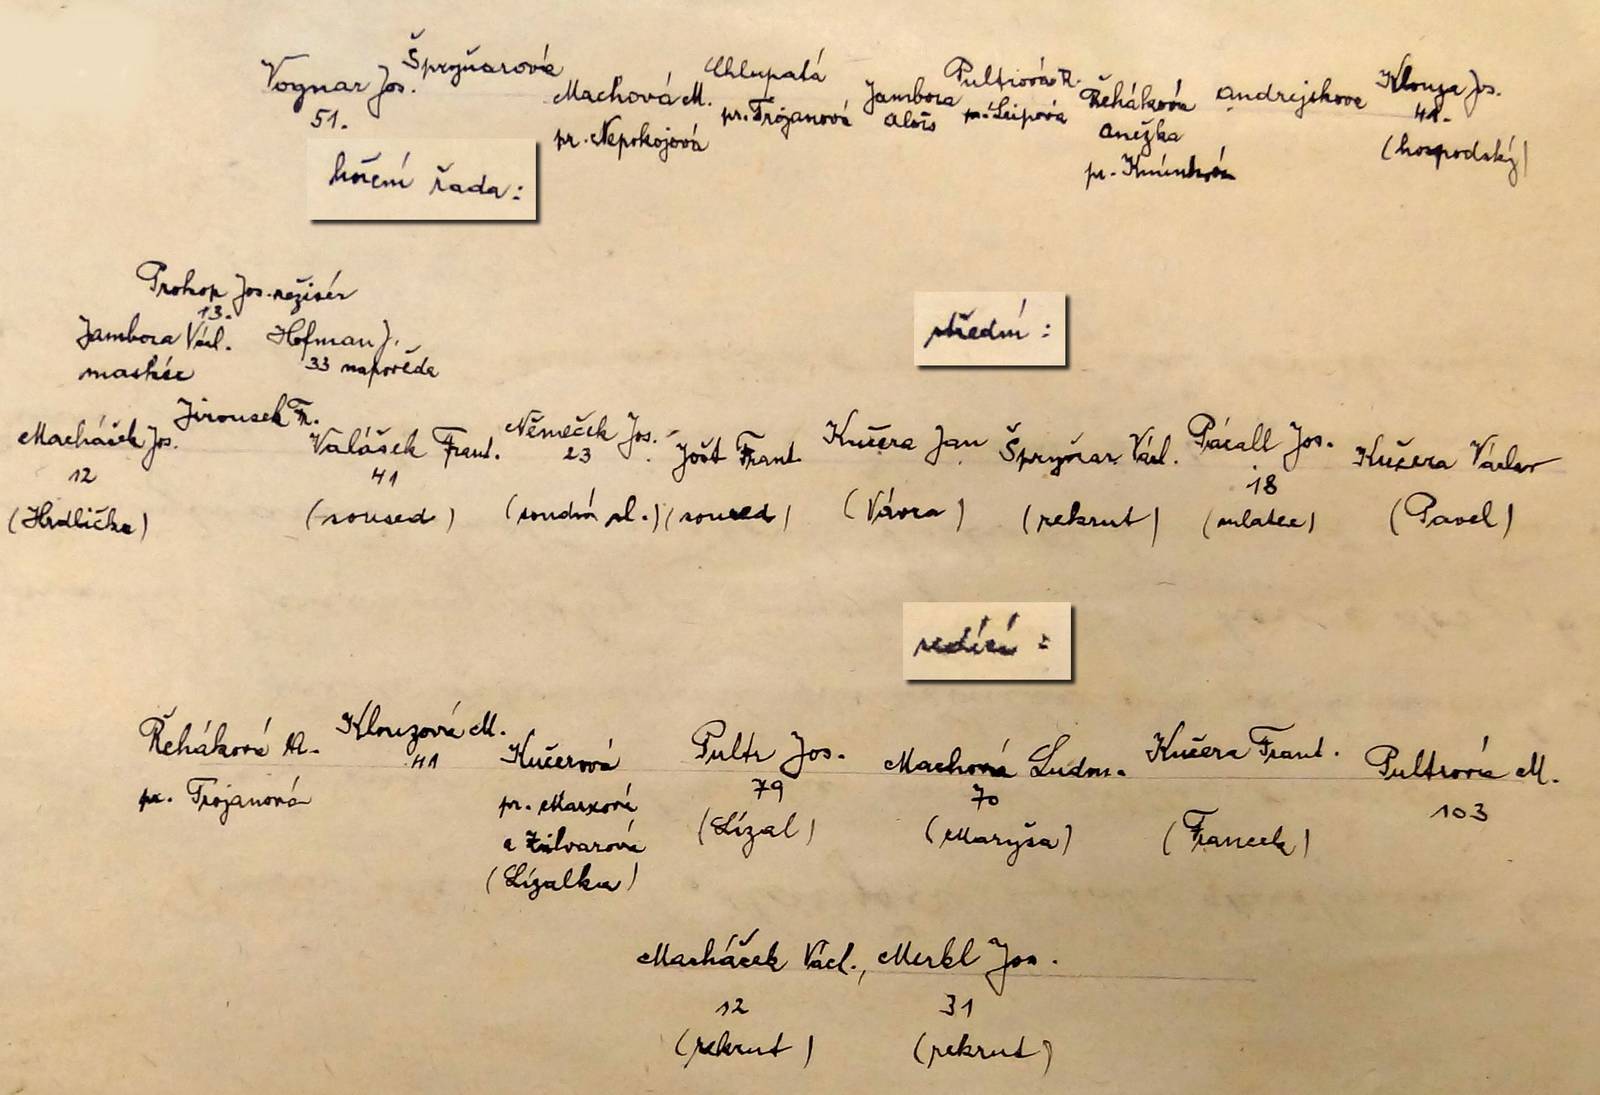 Vognar Jos. Špryňarová Machová M. Chlupatá Jambora Pultrová R. Řeháková Andrejskova Klouza Jos.
51. pr. Nepokojová pr. Trojanová Alois pr. Lípová Anežka 41.
pr. (hospodský)
hoření řada:
Prokop Jos. režisér
13.
Jambora Václ. Hofman J.
maskér 33 napověda
střední:
Macháček Jos. Jirousek Fr. Valášek Frant. Němeček Jos. Jošt Frant. Kučera Jan Špryňar Václ. Pácalt Jos. Kučera Václav
12 41 23 18
(Hrdlička) (soused) (soudní sl.) (soused) (Vávra) (rekrut) (mlatec) (Pavel)
sedící:
Řeháková A. Klouzová M. Kučerová Pultr Jos. Machová Ludm. Kučera Frant. Pultrová M.
pr. Trojanová 41 pr. Marxová 79 70 103
a Žilvarová (Lízal) (Maryša) (Francek)
(Lízalka)
Macháček Václ., Merkl Jos.
12 31
(rekrut) (rekrut)